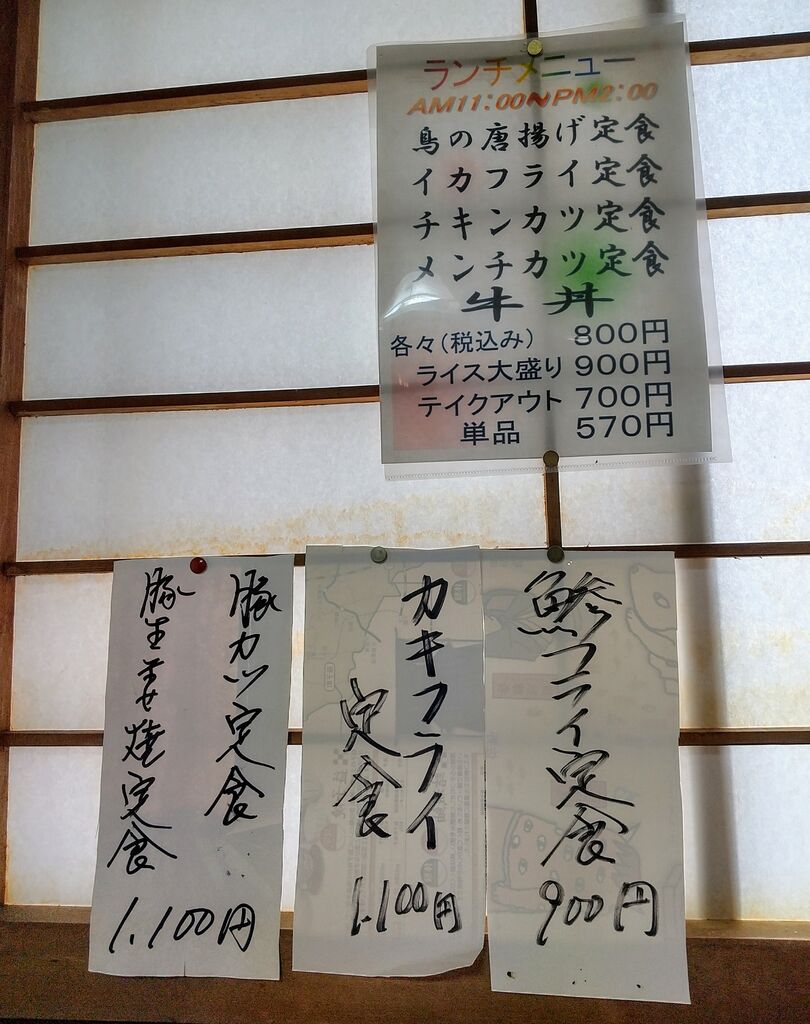 ランチメニュー
AM11:00~PM2:00
鳥の唐揚げ定食
イカフライ定食
チキンカツ定食
メンチカツ定食
牛丼
各々(税込み) 800円
ライス大盛り 900円
テイクアウト 700円
単品 570円
鯵フライ定食
900円
カキフライ
定食
1.100円
豚カツ定食
豚生姜焼定食
1.100円